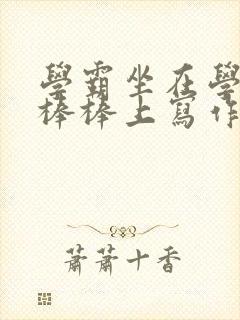 學霸坐在學
棒棒上寫作
蕭蕭十香